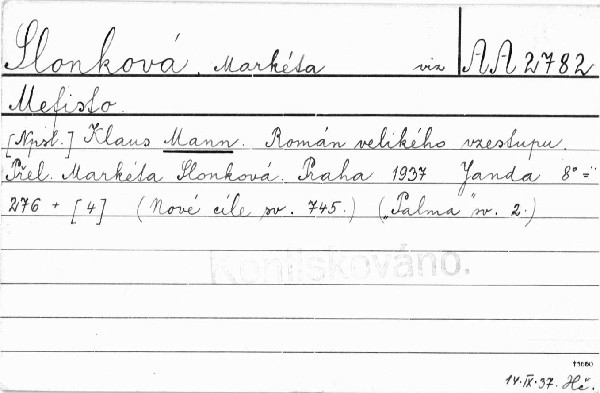 Slonková, Markéta viz AA 2782
Mefisto.
[Npsl.] Klaus Mann. Román velikého vzestupu.
Přel. Markéta Slonková. Praha 1937 Janda 8° =
276 + [4] (Nové cíle sv. 745.) („Palma“ sv. 2.)
Kontiskováno.
14.IX.37. Hč.